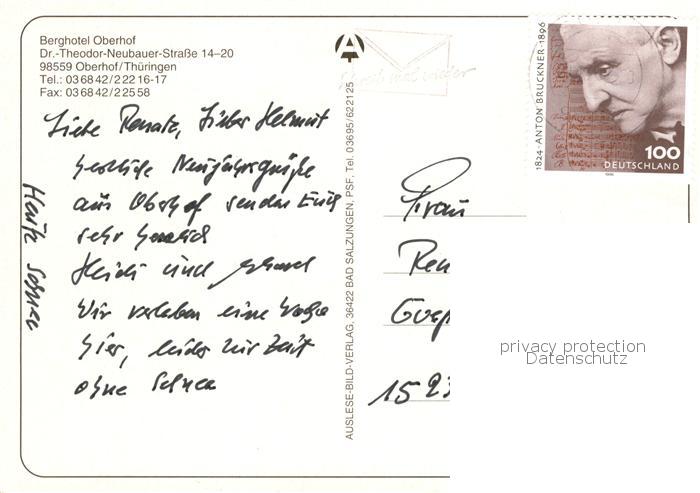 Berghotel Oberhof
Dr.-Theodor-Neubauer-Straße 14–20
98559 Oberhof/Thüringen
Tel.: 03 68 42/2 22 16-17
Fax: 03 68 42/2 25 58
Liebe Renate, Lieber Helmut
herzliche Neujahrsgrüße
aus Oberhof senden Euch
sehr herzlich
Heidi und
Wir verleben eine Woche
hier, leider zur Zeit
ohne Schnee
Heute Schnee
AUSLESE-BILD-VERLAG, 36422 BAD SALZUNGEN, PSF, Tel. 03695/622125
1824·ANTON BRUCKNER·1896
100
DEUTSCHLAND
Frau
Ren
Goep
15 23
privacy protection
Datenschutz